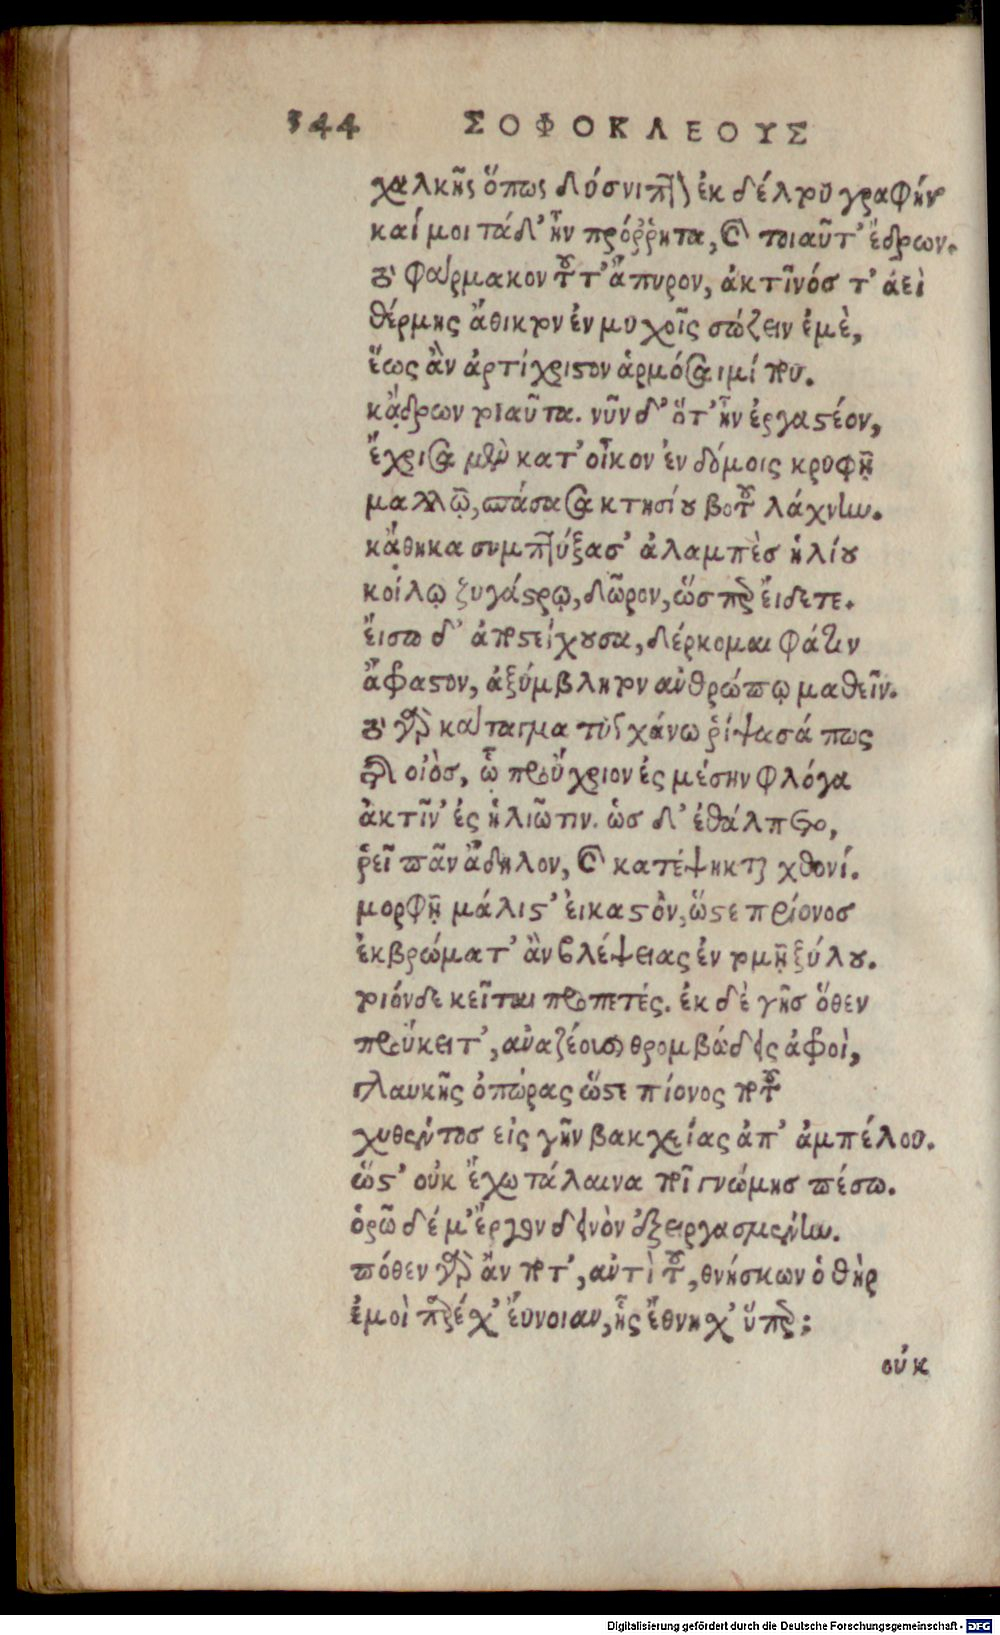 344 ΣΟΦΟΚΛΕΟΥΣ
χαλκῆς ὅπως δύσνιπτον ἐκ δέλτου γραφήν
καί μοι τάδ' ἦν πρόῤῥητα, καὶ τοιαῦτ' ἔδρων.
τὸ φάρμακον τοῦτ' ἄπυρον, ἀκτῖνόσ τ' ἀεὶ
θέρμης ἄθικτον ἐν μυχοῖς σώζειν ἐμὲ,
ἕως ἂν ἀρτίχριστον ἁρμόσαιμί που.
κᾄδρων τοιαῦτα. νῦν δ' ὅτ' ἦν ἐργαστέον,
ἔχρισα μὲν κατ' οἶκον ἐν δόμοις κρυφῇ
μαλλῷ, σπάσασα κτησίου βοτοῦ λάχνην.
κᾄθηκα συμπτύξασ' ἀλαμπὲσ ἡλίου
κοίλῳ ζυγάστρῳ, δῶρον, ὥσπερ εἴδετε.
εἴσω δ' ἀποστείχουσα, δέρκομαι φάτιν
ἄφαστον, ἀξύμβλητον ἀνθρώπῳ μαθεῖν.
τὸ γὰρ κάταγμα τυγχάνω ῥίψασά πως
τῆς οἰὸσ, ᾧ προὔχριον ἐς μέσην φλόγα
ἀκτῖν' ἐς ἡλιῶτιν. ὡσ δ' ἐθάλπετο,
ῥεῖ πᾶν ἄδηλον, καὶ κατέψηκται χθονί.
μορφῇ μάλιστ' εἰκαστὸν, ὥστε πρίονοσ
ἐκβρώματ' ἂν βλέψειας ἐν τομῇ ξύλου.
τοιόνδε κεῖται προπετές. ἐκ δὲ γῆσ ὅθεν
προὔκειτ', ἀναζέουσι θρομβώδεις ἀφροὶ,
γλαυκῆς ὀπώρας ὥστε πίονος ποτοῦ
χυθέντοσ εἰς γῆν βακχείας ἀπ' ἀμπέλου.
ὥστ' οὐκ ἔχω τάλαινα ποῖ γνώμησ πέσω.
ὁρῶ δέ μ' ἔργον δεινὸν ἐξειργασμένην.
πόθεν γὰρ ἄν ποτ', ἀντὶ τοῦ, θνήσκων ὁ θὴρ
ἐμοὶ παρέσχ' εὔνοιαν, ἧς ἔθνησχ' ὕπερ;
οὐκ
Digitalisierung gefördert durch die Deutsche Forschungsgemeinschaft - DFG